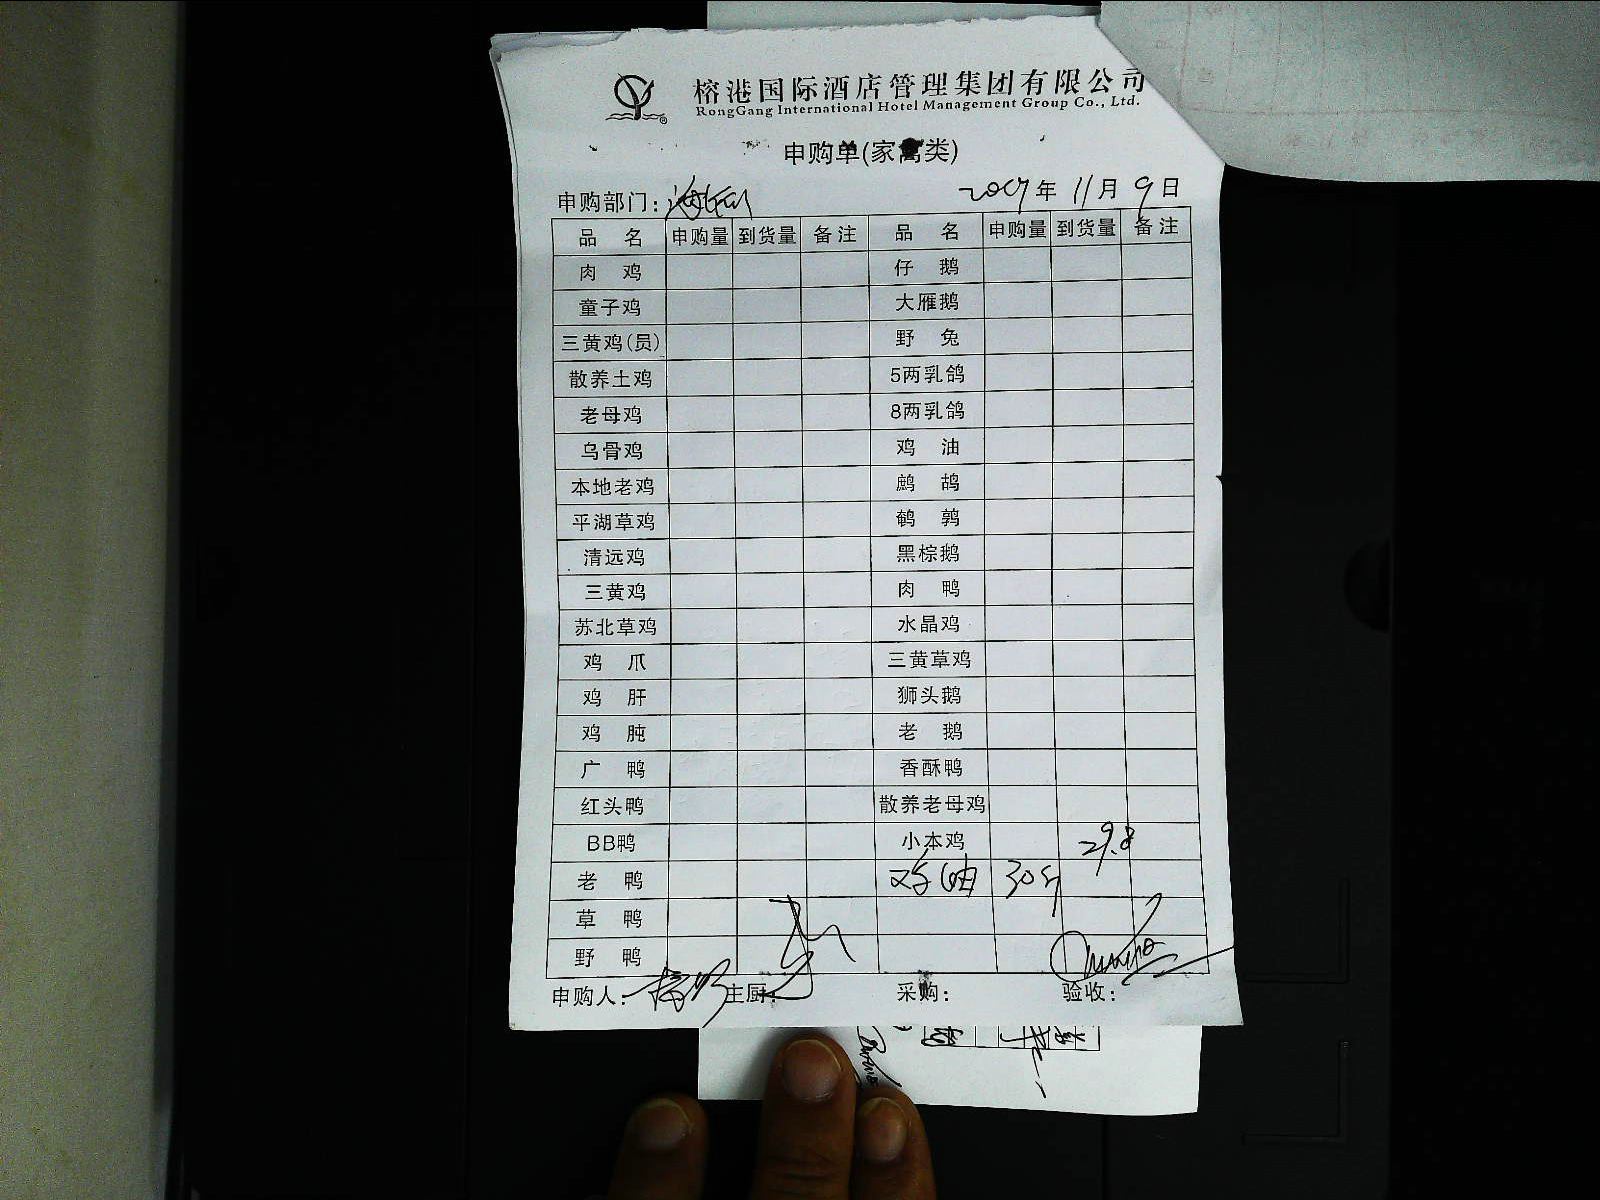 榕港国际酒店管理集团有限公司
RongGang International Hotel Management Group Co., Ltd.
申购单(家禽类)
申购部门: 2017年11月9日
品名 申购量 到货量 备注 品名 申购量 到货量 备注
肉鸡 仔鹅
童子鸡 大雁鹅
三黄鸡(员) 野兔
散养土鸡 5两乳鸽
老母鸡 8两乳鸽
乌骨鸡 鸡油
本地老鸡 鹧鸪
平湖草鸡 鹌鹑
清远鸡 黑棕鹅
三黄鸡 肉鸭
苏北草鸡 水晶鸡
鸡爪 三黄草鸡
鸡肝 狮头鹅
鸡肫 老鹅
广鸭 香酥鸭
红头鸭 散养老母鸡
BB鸭 小本鸡 29.8
老鸭 鸡油 30斤
草鸭
野鸭
申购人: 主厨: 采购: 验收: